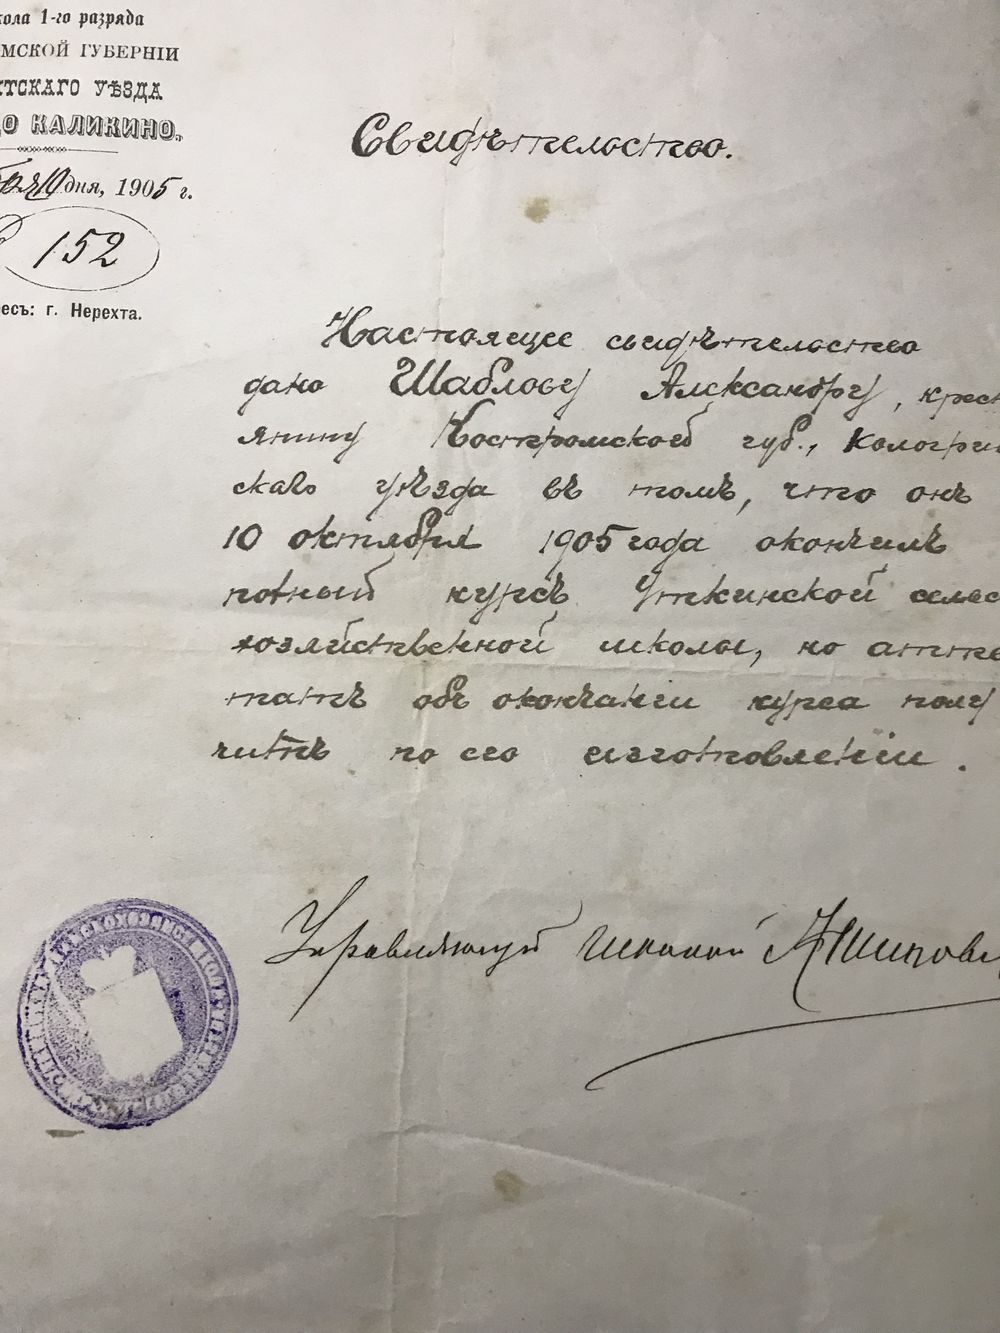 кола 1-го разряда
МСКОЙ ГУБЕРНІИ
ХТСКАГО УѢЗДА
ЦО КАЛИКИНО.
10 дня, 1905 г.
152
ресъ: г. Нерехта.
Свидѣтельство.
Настоящее свидѣтельство
дано Шаблову Александру, крест
янину Костромской губ., Кологрив
скаго уѣзда въ томъ, что онъ
10 октября 1905 года окончилъ
полный курсъ Уткинской сельс
хозяйственной школы, но аттес
татъ объ окончаніи курса полу
читъ по его изготовленіи.
Управляющій школой А Шипов